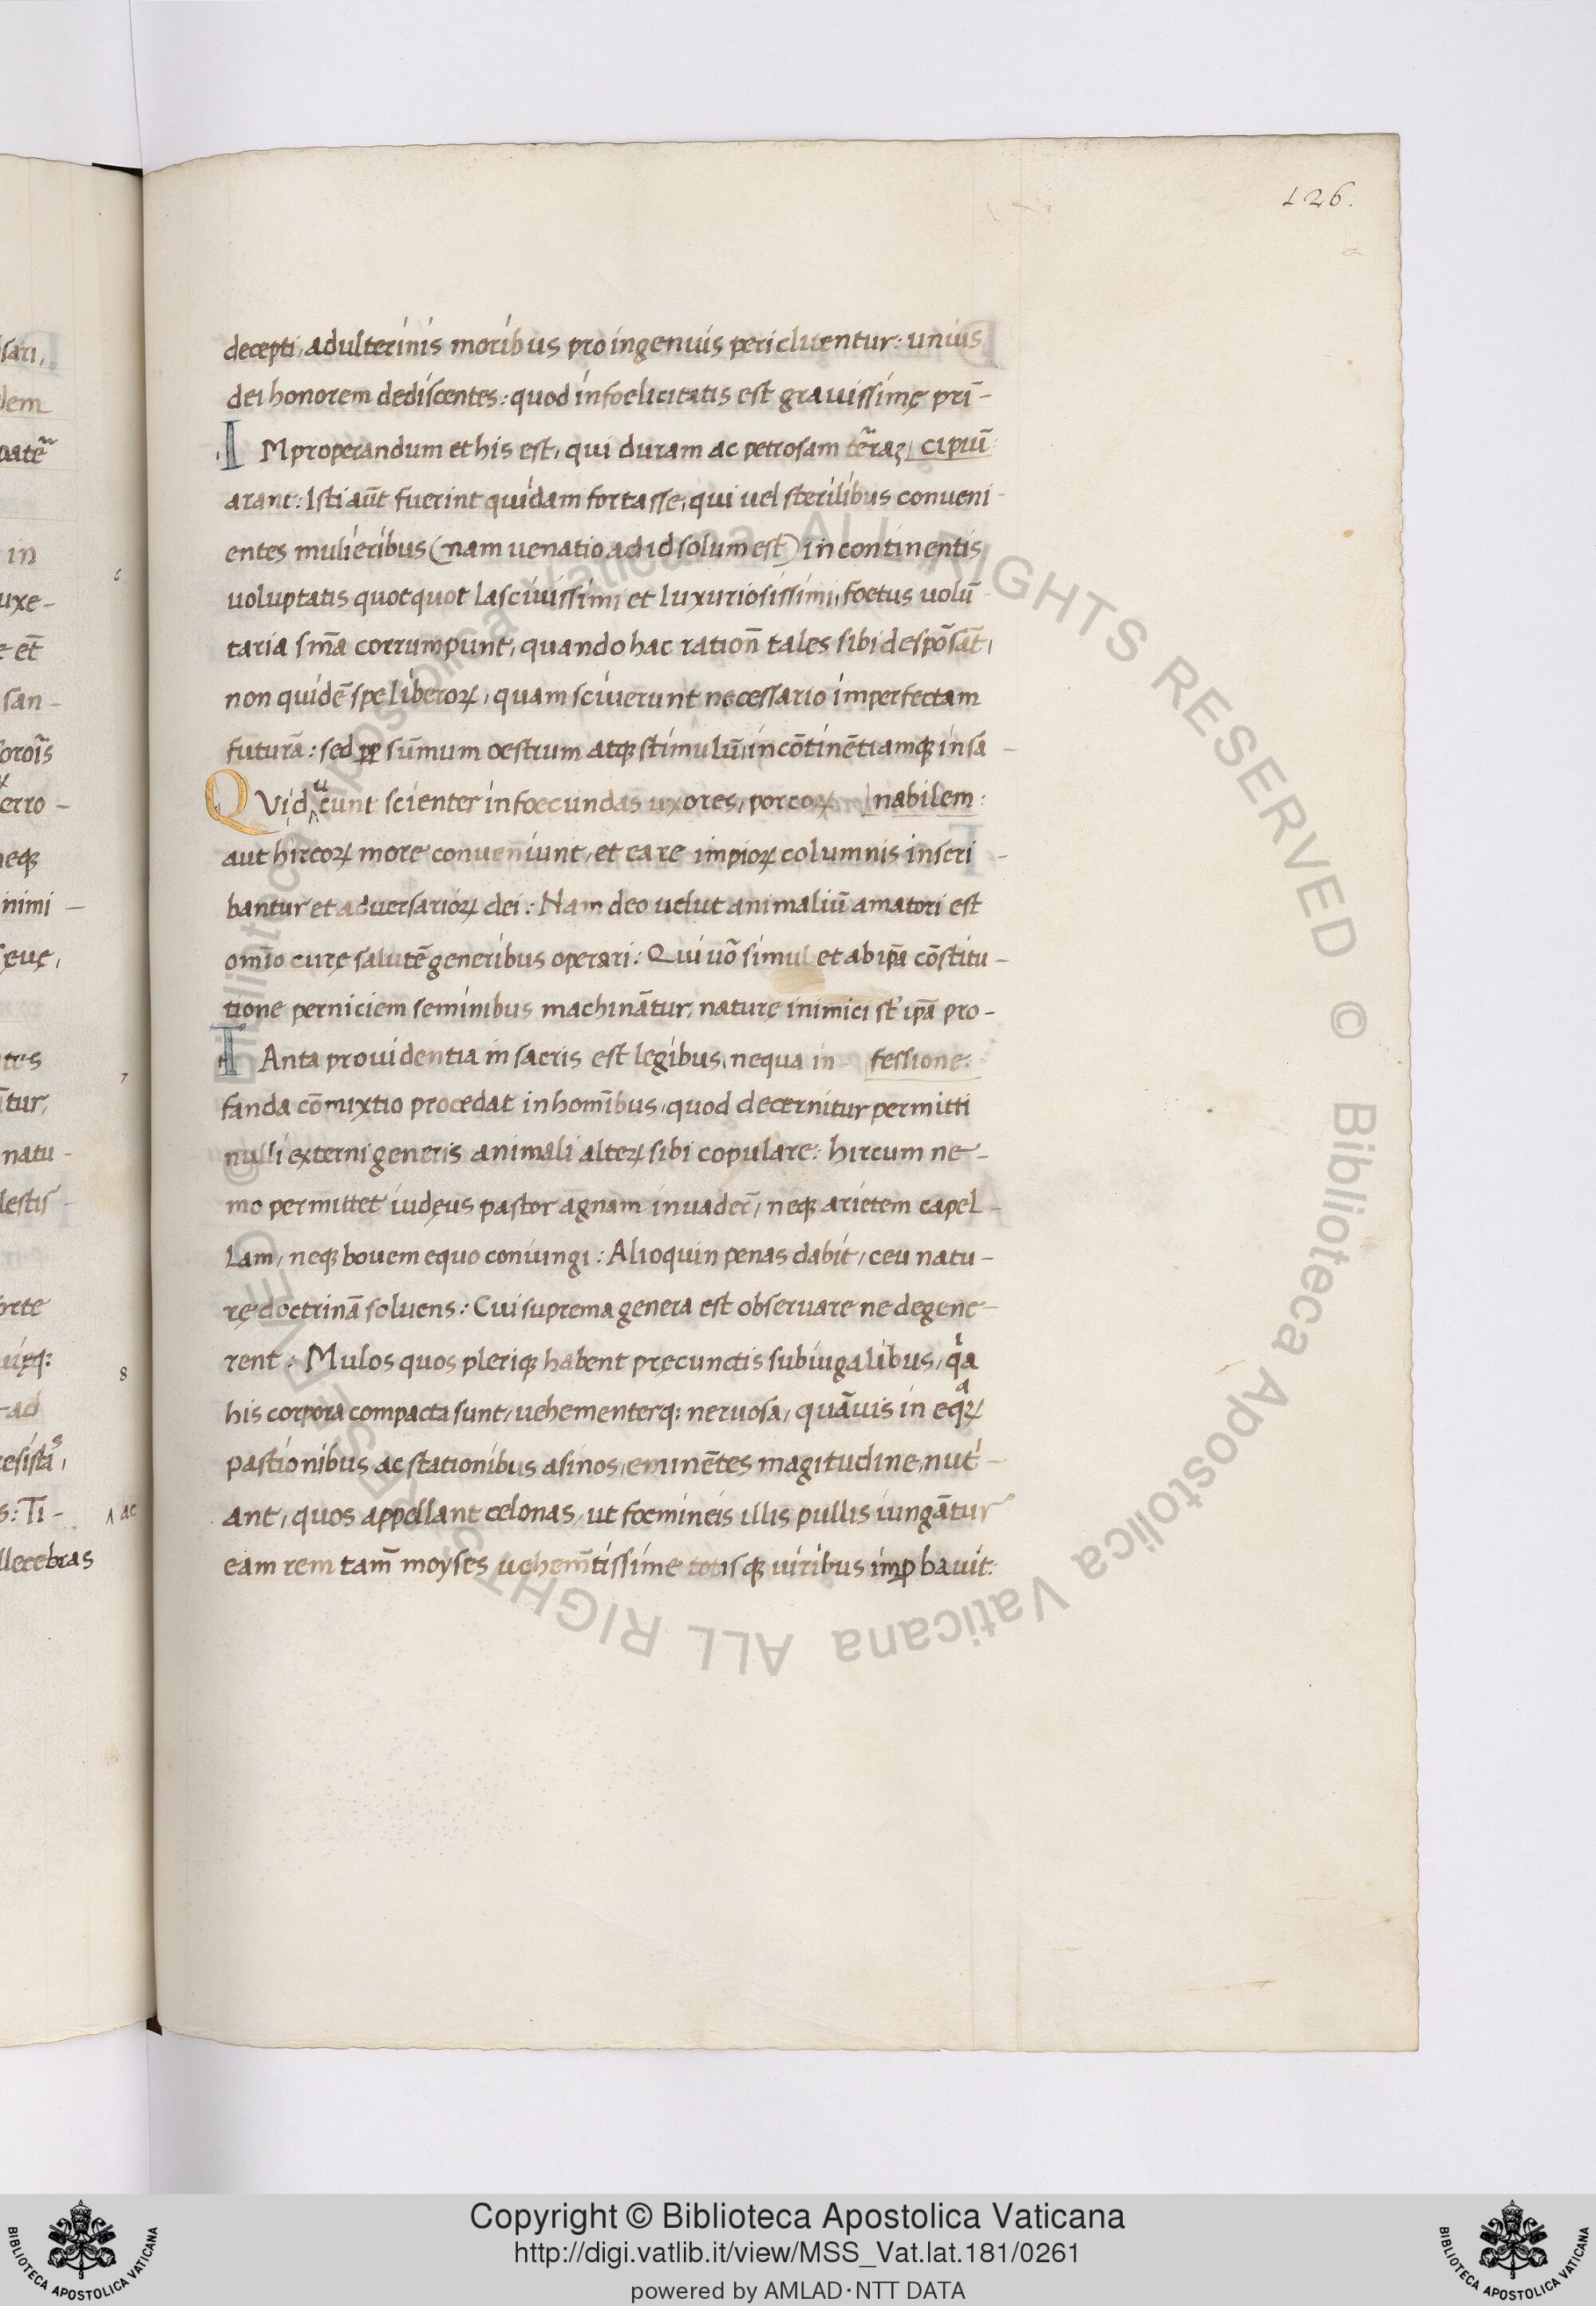 126.
decepti, adulterinis moribus pro ingenuis periclitentur: unius
dei honorem dediscentes: quod infoelicitatis est grauissimę pri͂ -
IMproperandum et his est, qui duram ac petrosam te͂raʒ cipiu͂:
arant: Isti au͂t fuerint quidam fortasse, qui uel sterilibus conueni -
entes mulieribus (nam uenatio ad id solum est) incontinentis
uoluptatis quotquot lasciuissimi et luxuriosissimi, foetus uolu͂ -
taria sm͂a corrumpunt, quando hac ration͂ tales sibi despo͂sa͂t,
non quide͂ spe liberoꝝ, quam sciuerunt necessario imperfectam
futura͂: sed ꝓꝑ su͂mum oestrum atqꝫ stimulu͂, inco͂tine͂tiamqꝫ insa -
QVid ducunt scienter infoecundas uxores, porcoꝝ nabilem:
aut hircoꝝ more conueniunt, et ea re impioꝝ columnis inscri -
bantur et aduersarioꝝ dei: Nam deo uelut animaliu͂ amatori est
omi͂o curę salute͂ generibus operari: Qui uo͂ simul et ab ip͂a co͂stitu -
tione perniciem seminibus machina͂tur, naturę inimici st͂ ip͂a pro -
TAnta prouidentia in sacris est legibus, nequa in fessione:
fanda co͂mixtio procedat in homi͂bus, quod decernitur permitti
nulli externi generis animali alteꝝ sibi copulare: hircum ne -
mo permittet iudęus pastor agnam inuader͂, neqꝫ arietem capel -
Lam, neqꝫ bouem equo coniungi: Alioquin penas dabit, ceu natu -
rę doctrina͂ soluens: Cui suprema genera est obseruare ne degene -
rent: Mulos quos pleriqꝫ habent prę cunctis subiugalibus, qͥa
his corpora compacta sunt, uehementerqꝫ neruosa, qua͂uis in eqͣꝝ
pastionibus ac stationibus asinos, emine͂tes magitudine, nut -
ant, quos appellant celonas, ut foemineis illis pullis iunga͂tur
eam rem tam͂ moyses uehem͂tissime totisqꝫ uiribus imꝓbauit:
sari,
dem
pate͂
in
uxe -
e et͂
san -
soroi͂s
erro -
neqꝫ
nimi -
sęuę,
ntes
a͂tur,
natu -
lestis -
orte
uięqꝫ
ad
resista͂,
s: Ti -
llecebras
6
7
8
^ ac
© Biblioteca Apostolica Vaticana ALL RIGHTS RESERVED © Biblioteca Apostolica Vaticana ALL RIGHTS RESERVED
Copyright © Biblioteca Apostolica Vaticana
http://digi.vatlib.it/view/MSS_Vat.lat.181/0261
powered by AMLAD·NTT DATA
BIBLIOTECA APOSTOLICA VATICANA
BIBLIOTECA APOSTOLICA VATICANA